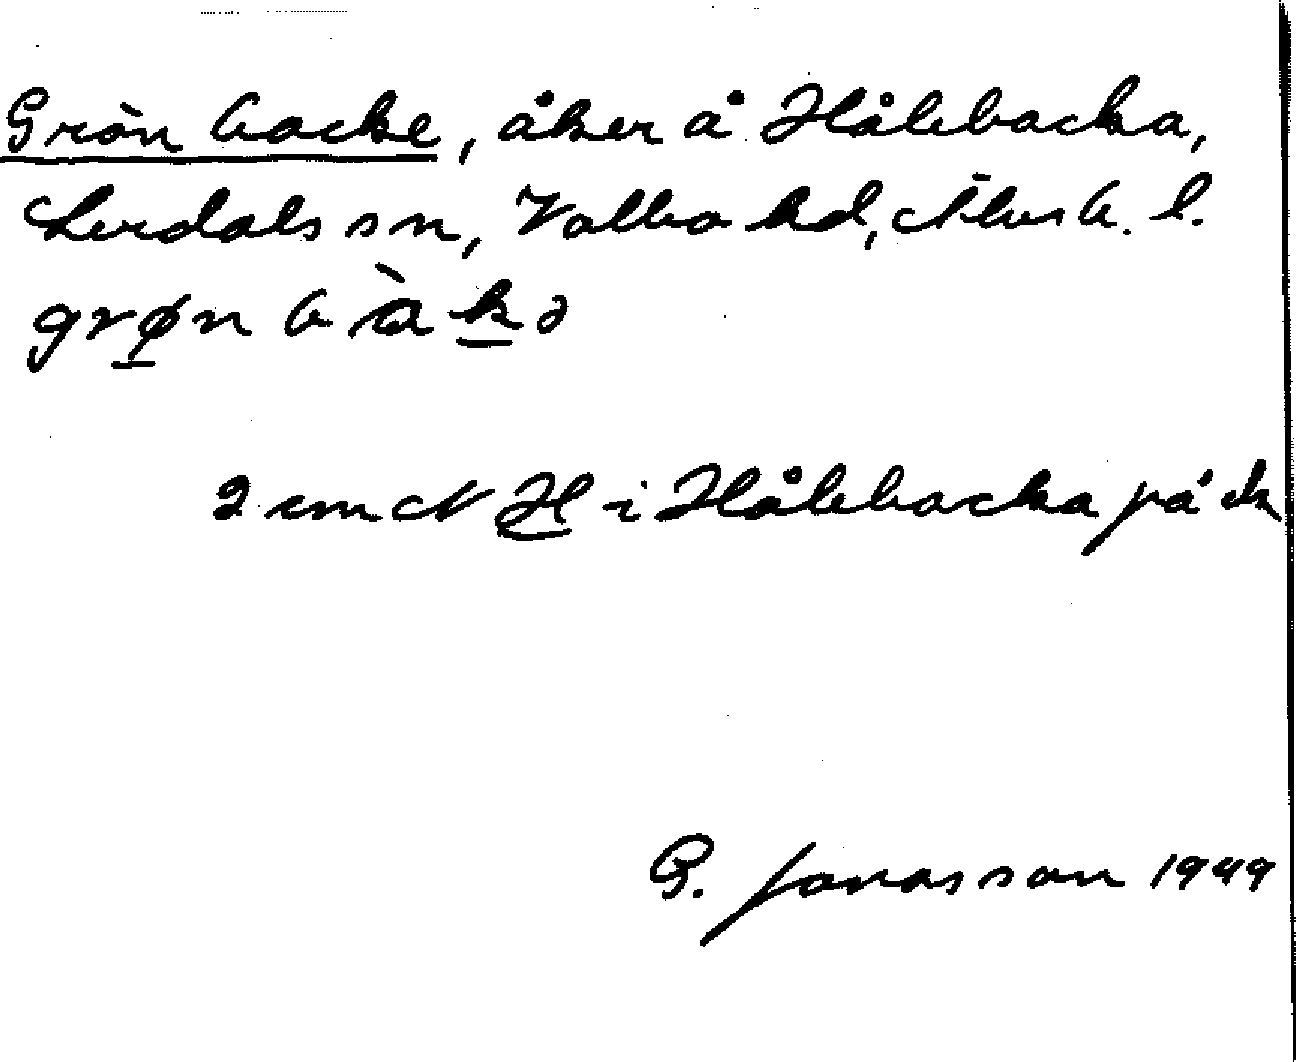 Grön backe, åker å Hålebacka,
Lerdals sn, Valbo hd, Älvsb. l.
grøn bàkə
2 cm N H i Hålebacka på ek
G. Jonasson 1949